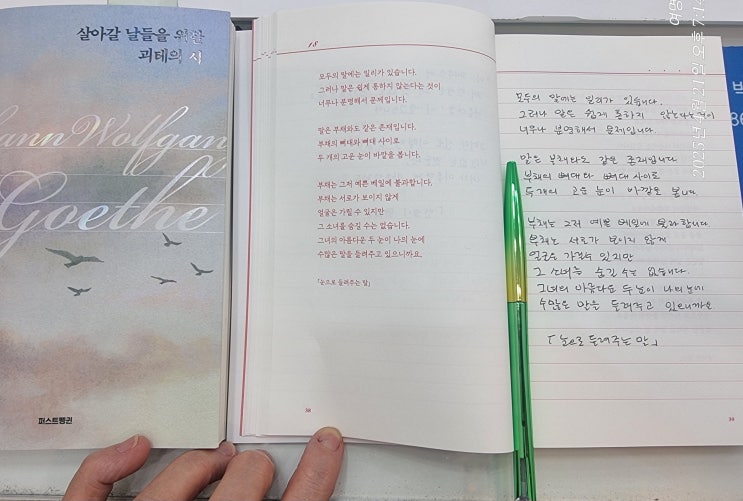 살아갈 날들을 위한
괴테의 시
ann Wolfgan
Goethe
퍼스트펭귄
18
모두의 말에는 일리가 있습니다.
그러나 말은 쉽게 통하지 않는다는 것이
너무나 분명해서 문제입니다.
말은 부채와도 같은 존재입니다.
부채의 뼈대와 뼈대 사이로
두 개의 고운 눈이 바깥을 봅니다.
부채는 그저 예쁜 베일에 불과합니다.
부채는 서로가 보이지 않게
얼굴은 가릴 수 있지만
그 소녀를 숨길 수는 없습니다.
그녀의 아름다운 두 눈이 나의 눈에
수많은 말을 들려주고 있으니까요.
「눈으로 들려주는 말」
38
모두의 말에는 일리가 있습니다.
그러나 말은 쉽게 통하지 않는다는 것이
너무나 분명해서 문제입니다
말은 부채와도 같은 존재입니다
부채의 뼈대와 뼈대 사이로
두 개의 고운 눈이 바깥을 봅니다
부채는 그저 예쁜 베일에 불과합니다.
부채는 서로가 보이지 않게
얼굴은 가릴 수 있지만
그 소녀를 숨길 수는 없습니다.
그녀의 아름다운 두 눈이 나의 눈에
수많은 말을 들려주고 있으니까요
「눈으로 들려주는 말」
39